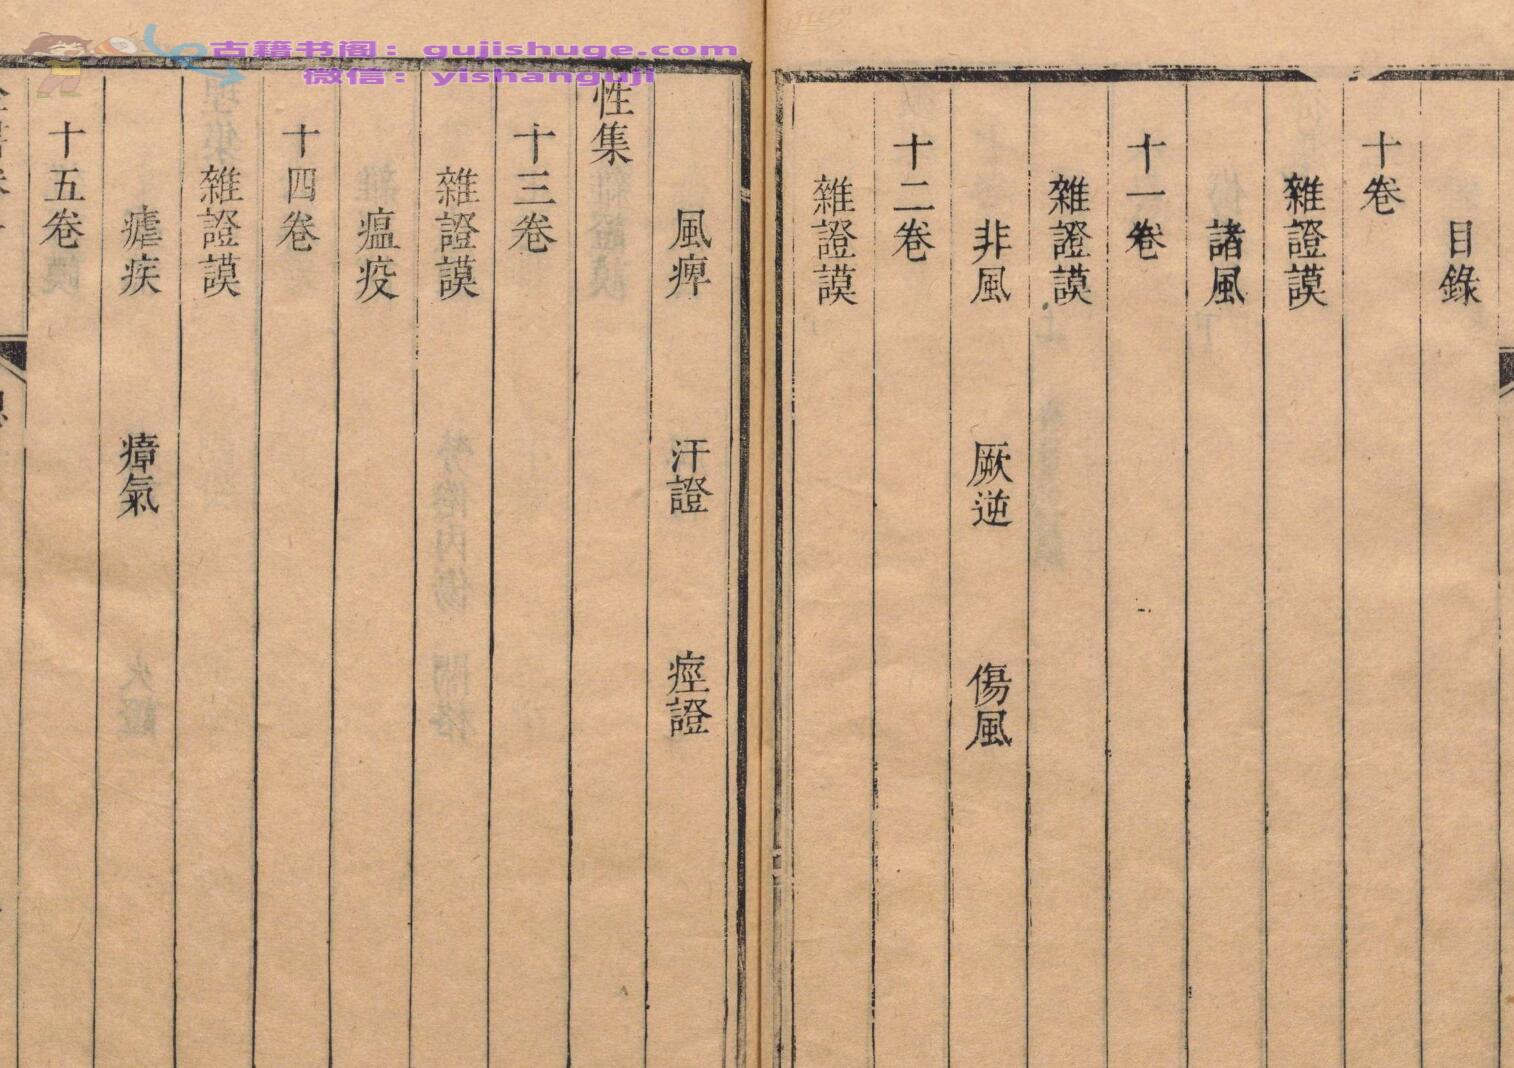 古籍书阁：gujishuge.com
微信：yishanguji
目錄
十卷
雜證謨
諸風
十一卷
雜證謨
非風　厥逆　傷風
十二卷
雜證謨
風痺　汗證　痙證
性集
十三卷
雜證謨
瘟疫
十四卷
雜證謨
瘧疾　瘴氣
十五卷